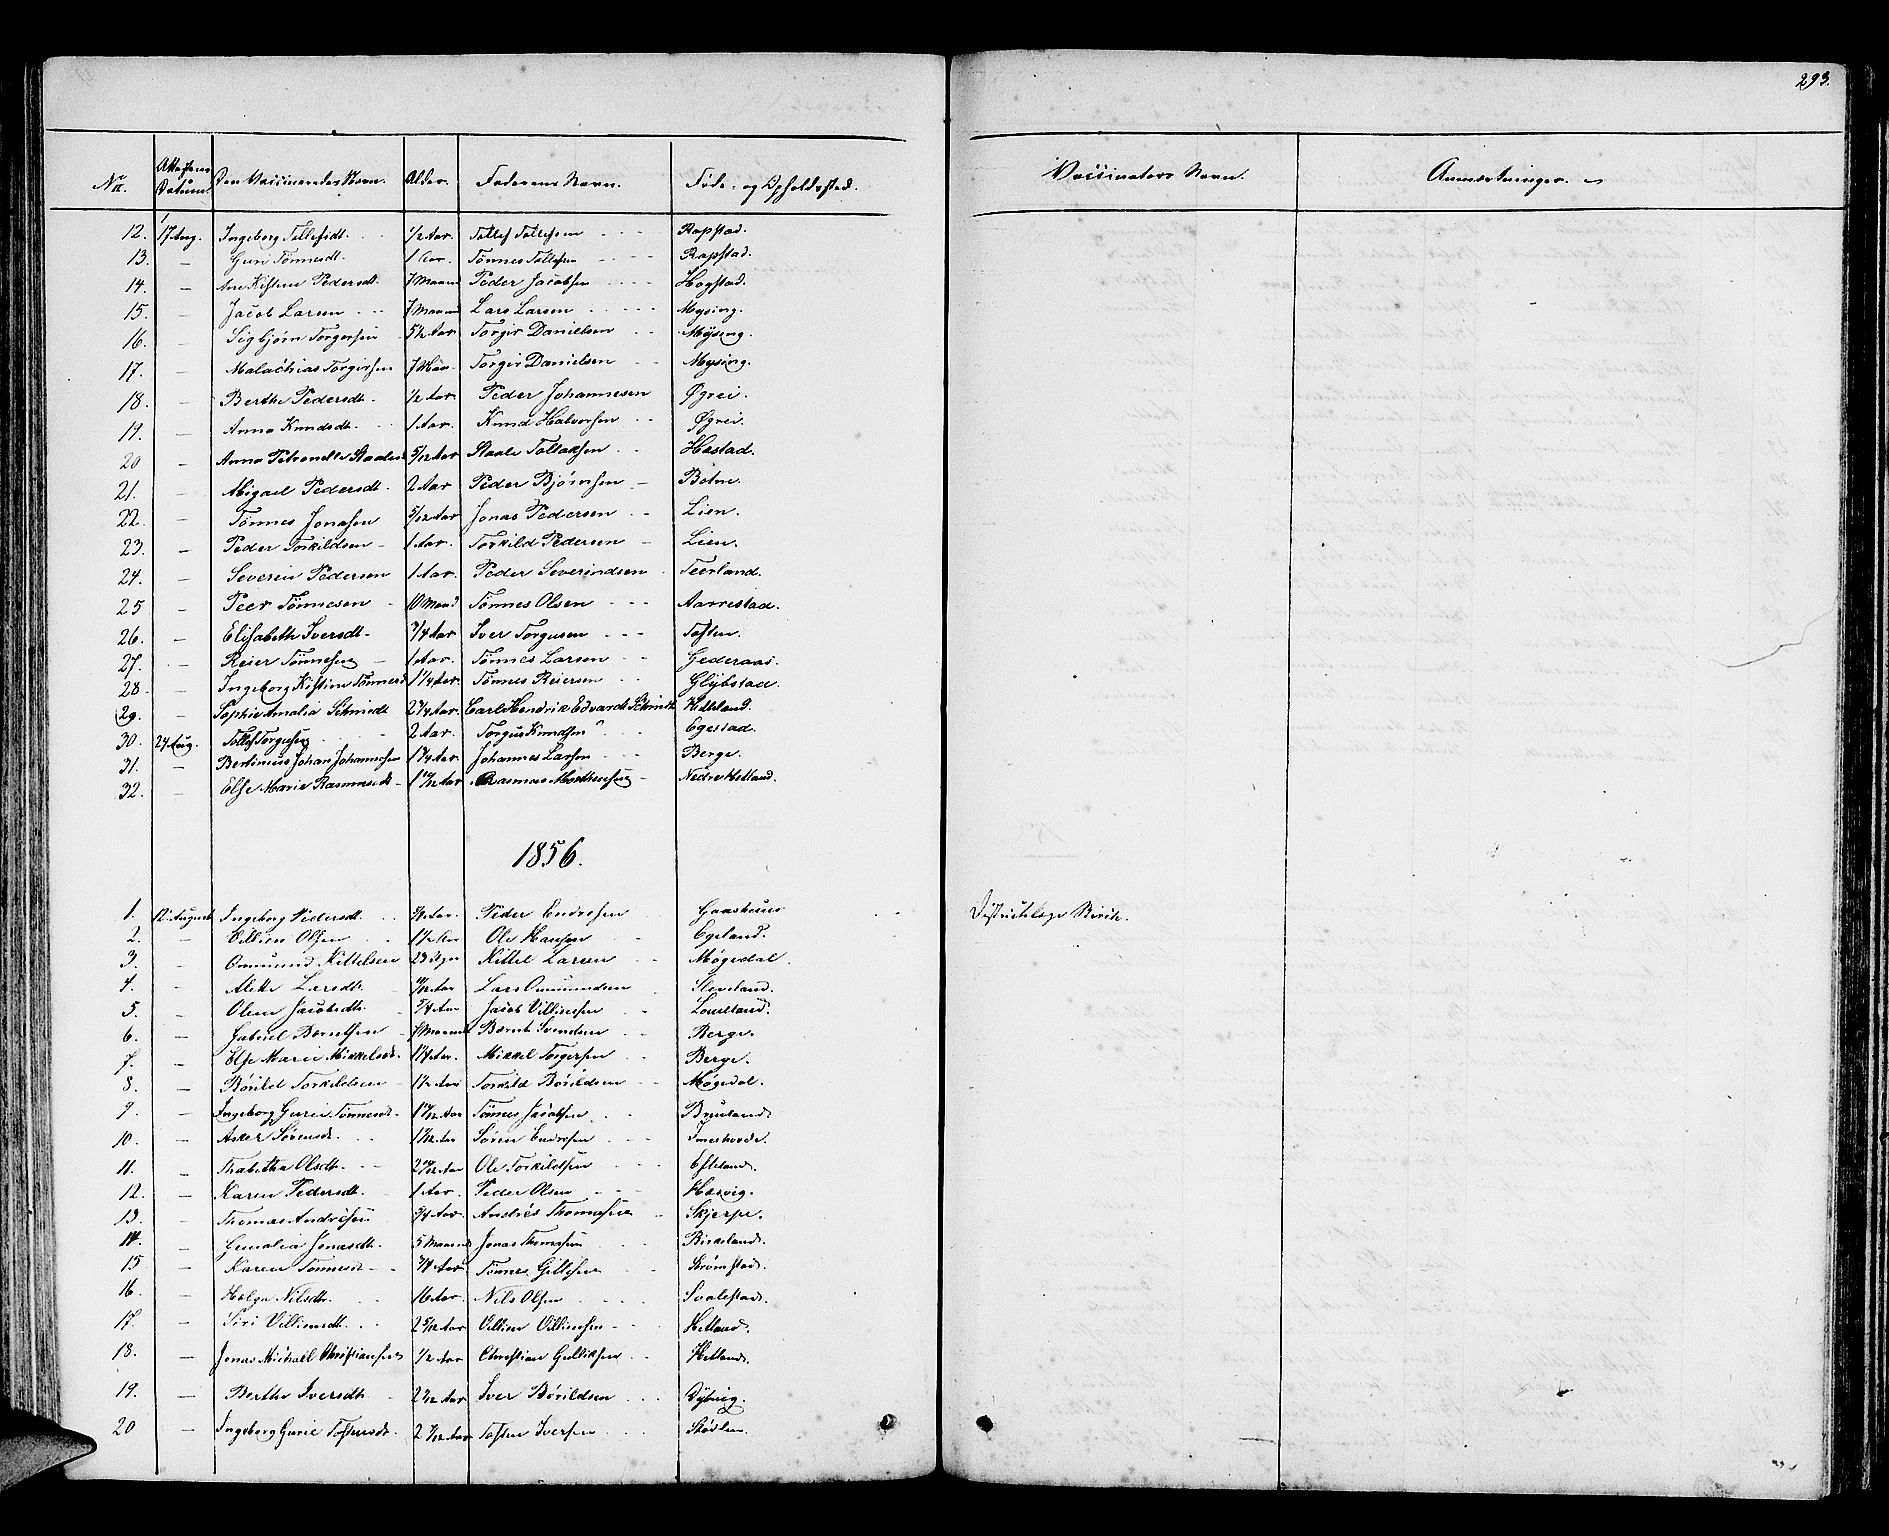 293.
No. Attestens Datum. Den Vaccineredes Navn. Alder. Faderens Navn. Føde- og Opholdssted. Vaccinators Navn. Anmærkninger.
12. 17 Aug. Ingeborg Tollefsdt. 1/2 Aar. Tollef Tollefsen Rapstad.
13. — Guri Tönnesdt. 1 Aar. Tönnes Tollefsen Rapstad.
14. — Ane Kistine Pedersdt. 7 Maaned Peder Jacobsen Hogstad.
15. — Jacob Larsen 7 Maaned Lars Larsen Mysing.
16. — Sigbjørn Torgersen 5 1/2 Aar. Torgir Danielsen Mÿsing.
17. — Malachias Torgirsen 7 Maan. Torgir Danielsen Mysing.
18. — Berthe Pedersdt. 1/2 Aar. Peder Johannesen Øgrei.
19. — Anna Knudsdt. 1 Aar. Knud Halvorsen Øgrei.
20 — Anna Petronelle Staalesd 5/12 Aar Staale Tollaksen Hæstad.
21. — Abigael Pedersdt. 2 Aar. Peder Bjørnsen Botne.
22. — Tönnes Jonasen 5/12 Aar Jonas Pedersen Lien.
23. — Peder Torkildsen 1 Aar. Torkild Pedersen Lien.
24. — Severin Pedersen 1 Aar. Peder Severindsen Teerland.
25 — Peer Tönnesen 10 Maand Tönnes Olsen Aarrestad.
26. — Elisabeth Iversdt. 3/4 Aar. Iver Torgusen Tosten.
27. — Reier Tönnesen 1 Aar. Tönnes Larsen Gederaas.
28. — Ingeborg Kistine Tönnesd 1 1/4 Aar. Tönnes Reiersen Glÿbstad.
29. — Sophie Amalia Schmidt 2 1/4 Aar. Carl Hendrik Edvardt Schmidt Hetland.
30. 24 Aug. Tollef Torgusen 2 Aar. Torgus Knudsen Egestad.
31. — Bertinius Johan Johannesen 1 1/4 Aar. Johannes Larsen Berge.
32. — Else Marie Rasmusdt. 1 10/12 Aar Rasmus Mortensen Nedre Hetland.
1856.
1. 12. August Ingeborg Pedersdt. 3/4 Aar. Peder Endresen Gaashuus Districtslæge Birch.
2. — Villien Olsen 1 1/2 Aar Ole Hansen Egeland.
3. — Ommund Kittelsen 23 Uger Kittel Larsen Møgedal.
4. — Alette Larsdt. Aar Lars Ommundsen Sleveland.
5. — Olene Jacobsdt. 5/4 Aar Jacob Villiumsen
6. — Gabriel Berntsen 7 Maaned Bærnt Svendsen Berge.
7. — Else Marie Mikkelsdt. 1 1/4 Aar. Mikkel Torgersen Berge.
8. — Börild Torkildsen 1 1/2 Aar Torkild Börildsen Møgedal.
9. — Ingeborg Gurie Tönnesdt. 1 10/12 Aar Tönnes Jacobsen Bruland.
10. — Asker Sörensdt. Aar Sören Endresen
11. — Thabitha Olsdt. Aar Ole Torkildsen Efteland.
12. — Karen Pedersdt. 1 Aar. Peder Olsen Hæsvig.
13. — Thomas Andrésen 3/4 Aar. Andrés Thomassen Skjerpe.
14. — Gunalia Jonasdt. 5 Maaned Jonas Thomassen Birkeland.
15. — Karen Tönnesdt. 3/4 Aar. Tönnes Gittesen Strømstad.
16. — Helga Nilsdtr. 16 Aar. Nils Olsen Svalestad.
17. — Siri Villiumsdt. 2 5/12 Aar Villium Villiumsen Hetland.
18. — Jonas Michael Christiansen 1/2 Aar Christian Gulliksen Hetland.
19. — Berthe Iversdt. Aar Iver Börildsen Dÿbvig.
20 — Ingeborg Gurie Tostensdt. 2 Aar Tosten Iversen Stødlen.